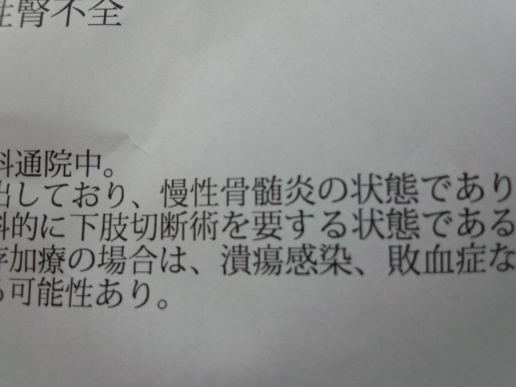 性腎不全
科通院中。
出しており、慢性骨髄炎の状態であり
科的に下肢切断術を要する状態である
存加療の場合は、潰瘍感染、敗血症な
る可能性あり。